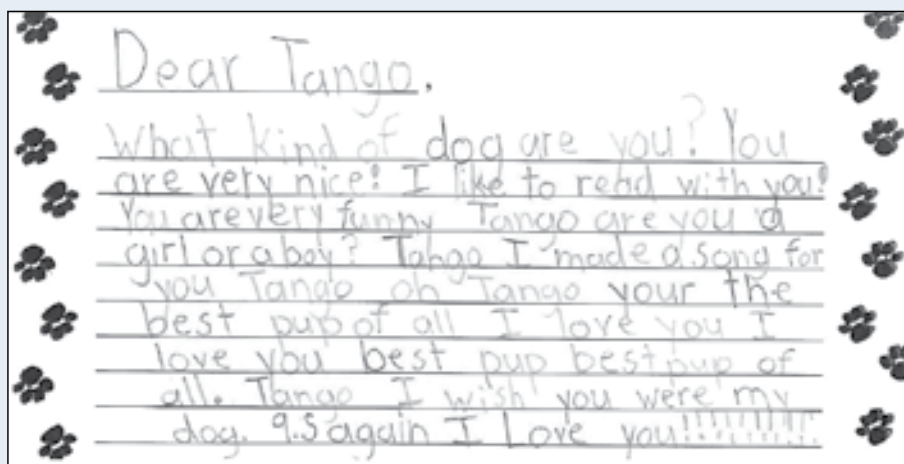 Dear Tango.
What kind of dog are you? You
are very nice! I like to read with you!
You are very funny Tango are you a
girl or a boy? Tango I made a song for
you Tango oh Tango your the
best pup of all I love you I
love you best pup best pup of
all. Tango I wish you were my
dog. 9.5 again I Love you!!!!!!!!!!